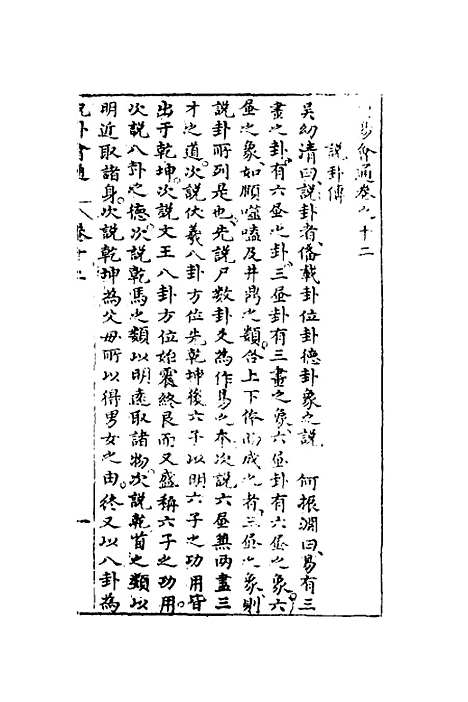 易會通卷之十二
說卦傳
吳幼清曰說卦者備載卦位卦德卦象之說 何振淵曰易有三
畫之卦有六畫之卦三畫卦有三畫之象六畫卦有六畫之象六
畫之象如頤噬嗑及井鼎之類合上下體而成之者三畫之象則
說卦所列是也先說尸數卦爻為作易之本次說六畫兼兩畫三
才之道次說伏羲八卦方位先乾坤後六子以明六子之功用皆
出于乾坤次說文王八卦方位始震終艮而又盛稱六子之功用
次說八卦之德次說乾馬之類以明遠取諸物次說乾首之類以
明近取諸身次說乾坤為父母所以得男女之由終又以八卦為
卦會通 卷十二 一